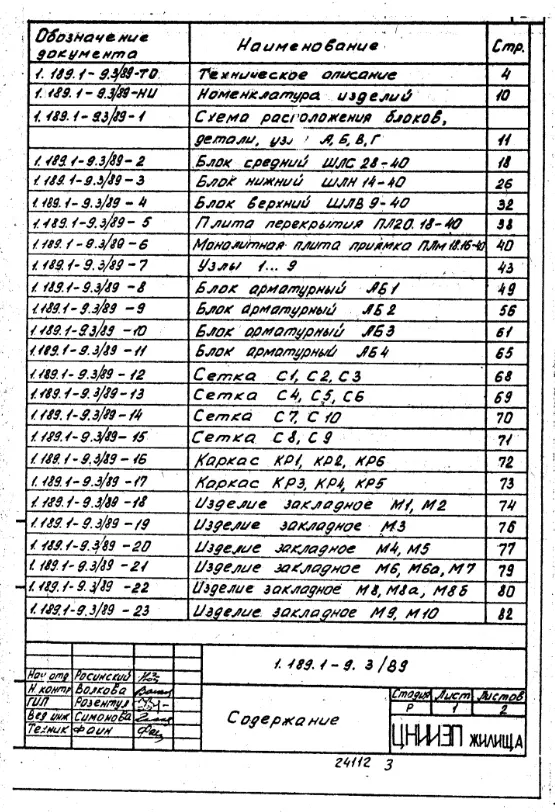 Обозначение документа Наименование Стр.
1.189.1-9.3/89-ТО Техническое описание 4
1.189.1-9.3/89-НИ Номенклатура изделий 10
1.189.1-9.3/89-1 Схема расположения блоков,
детали, узл А, Б, В, Г 11
1.189.1-9.3/89-2 Блок средний ШЛС 28-40 18
1.189.1-9.3/89-3 Блок нижний ШЛН 14-40 26
1.189.1-9.3/89-4 Блок верхний ШЛВ 9-40 32
1.189.1-9.3/89-5 Плита перекрытия ПЛ20.18-40 38
1.189.1-9.3/89-6 Монолитная плита приямка ПЛм 18.16-40 40
1.189.1-9.3/89-7 Узлы 1...9 43
1.189.1-9.3/89-8 Блок арматурный АБ1 49
1.189.1-9.3/89-9 Блок арматурный АБ2 56
1.189.1-9.3/89-10 Блок арматурный АБ3 61
1.189.1-9.3/89-11 Блок арматурный АБ4 65
1.189.1-9.3/89-12 Сетка С1, С2, С3 68
1.189.1-9.3/89-13 Сетка С4, С5, С6 69
1.189.1-9.3/89-14 Сетка С7, С10 70
1.189.1-9.3/89-15 Сетка С8, С9 71
1.189.1-9.3/89-16 Каркас КР1, КР2, КР6 72
1.189.1-9.3/89-17 Каркас КР3, КР4, КР5 73
1.189.1-9.3/89-18 Изделие закладное М1, М2 74
1.189.1-9.3/89-19 Изделие закладное М3 76
1.189.1-9.3/89-20 Изделие закладное М4, М5 77
1.189.1-9.3/89-21 Изделие закладное М6, М6а, М7 79
1.189.1-9.3/89-22 Изделие закладное М8, М8а, М8б 80
1.189.1-9.3/89-23 Изделие закладное М9, М10 82
1.189.1-9.3/89
Нач отд Росинский
Н.контр Волкова
ГИП Розентул
Вед инж Симонова
Техник Фаин
Содержание
Стадия Лист Листов
Р 1 2
ЦНИИЭП ЖИЛИЩА
24112 3